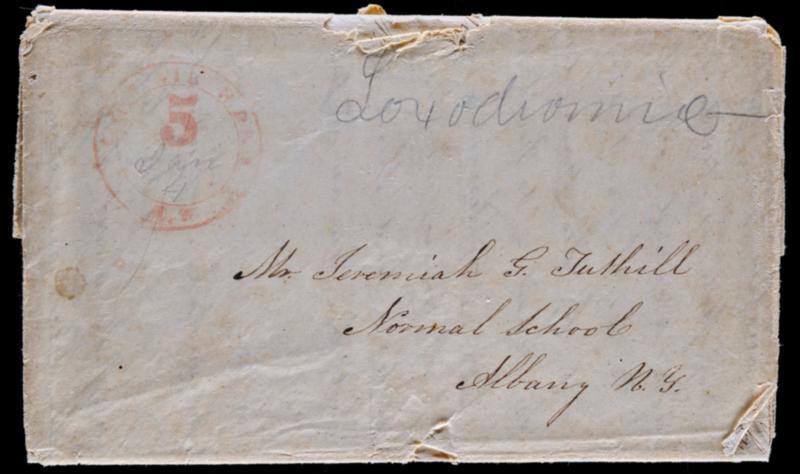 Loxodromic
5
Jan
4
Mr. Jeremiah G. Tuthill
Normal School
Albany N. Y.